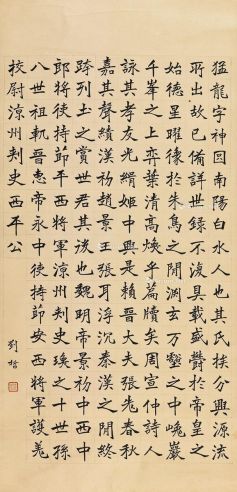 猛龍字神囘南陽白水人也其氏族分興源流
所出故已備詳世録不復具載盛欝於帝皇之
始德星曜像於朱鳥之閒淵玄萬壑之中巉巖
千峯之上奕葉清高煥乎篇牘矣周宣仲詩人
詠其孝友光緝姬中興是賴晉大夫張老春秋
嘉其聲績漢初趙景王張耳浮沉秦漢之閒終
跨列土之賞世君其後也魏明帝景初中西中
郎將使持節平西將軍涼州刾史瑍之十世孫
八世祖軌晉惠帝永中使持節安西將軍護羌
校尉涼州刾史西平公
劉哲